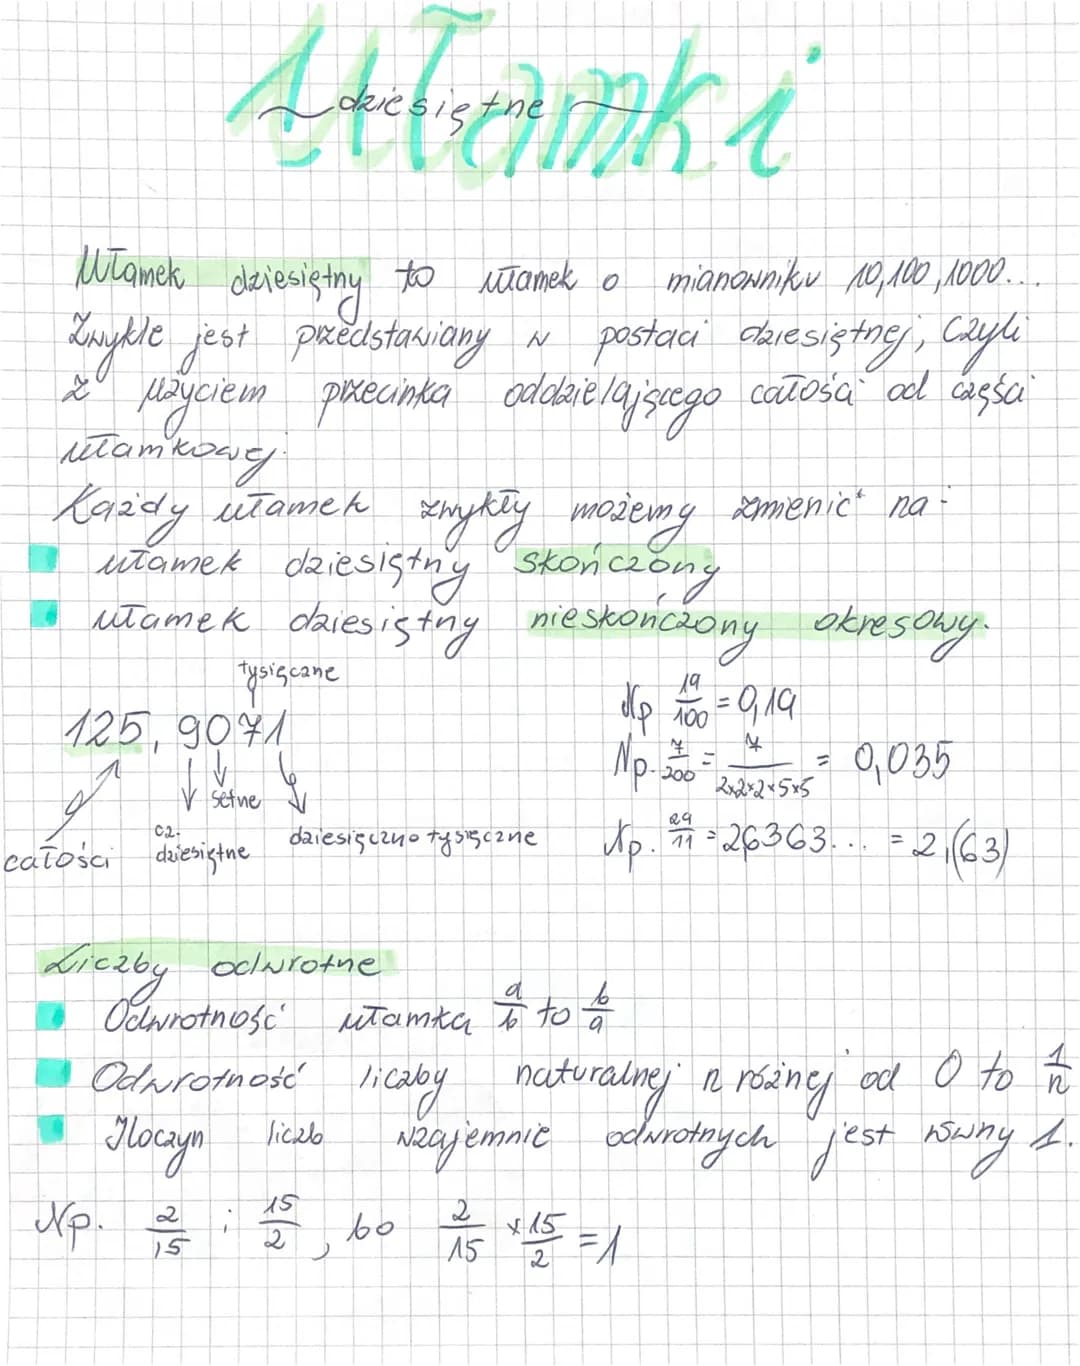 Ułamki
dziesiętne
Ułamek dziesiętny to ułamek o mianowniku 10,100,1000...
Zwykle jest przedstawiany w postaci dziesiętnej, czyli
z użyciem przecinka oddzielającego całości od części
ułamkowej.
Każdy ułamek zwykły możemy zmienić na:
ułamek dziesiętny skończony
ułamek dziesiętny nieskończony okresowy.
tysięczne
125,9071
setne
cz.
dziesiętne
dziesięciotysięczne
całości
Np 19/100 = 0,19
Np. 7/200 = 7/2×2×2×5×5 = 0,035
Np. 29/11 = 2,6363... = 2,(63)
Liczby odwrotne
Odwrotność ułamka a/b to b/a
Odwrotność liczby naturalnej n różnej od 0 to 1/n
Iloczyn liczb wzajemnie odwrotnych jest równy 1.
Np. 2/15 i 15/2, bo 2/15 × 15/2 = 1